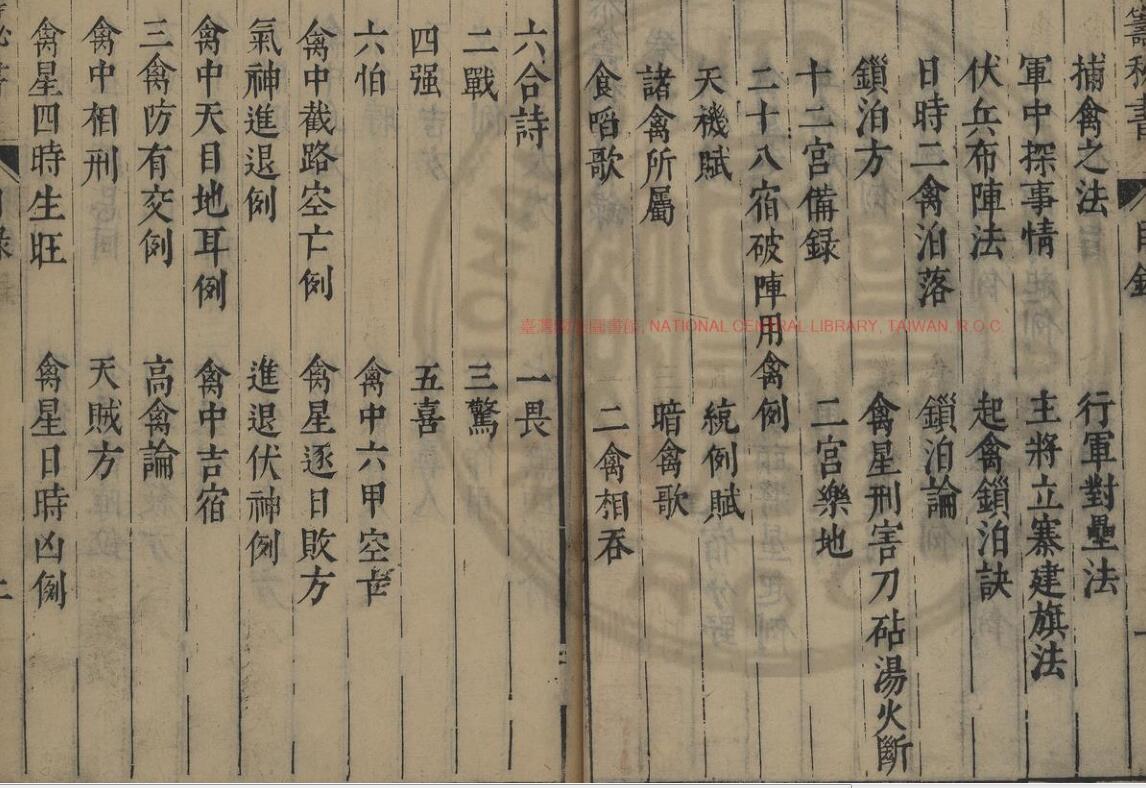 目錄
捕禽之法 行軍對壘法
軍中探事情 主將立寨建旗法
伏兵布陣法 起禽鎖泊訣
日時二禽泊落 鎖泊論
鎖泊方 禽星刑害刀砧湯火斷
十二宮備録 二宮樂地
二十八宿破陣用禽例
天機賦 統例賦
諸禽所屬 暗禽歌
食啗歌 二禽相吞
六合詩 一畏
二戰 三驚
四强 五喜
六怕 禽中六甲空亡
禽中截路空亡例 禽星逐日敗方
氣神進退例 進退伏神例
禽中天目地耳例 禽中吉宿
三禽防有交例 高禽論
禽中相刑 天賊方
禽星四時生旺 禽星日時凶例
NATIONAL CENTRAL LIBRARY, TAIWAN, R.O.C.